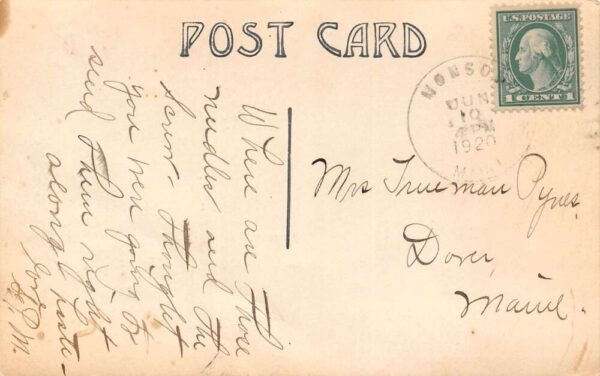 POST CARD
U.S. POSTAGE
1 CENT 1
MONSON
JUN
10
PM
1920
Where are those
needles and the
Screw - Thought
you were going to
send them right
along
G. M.
Mrs Trueman Pynes
Dover,
Maine.